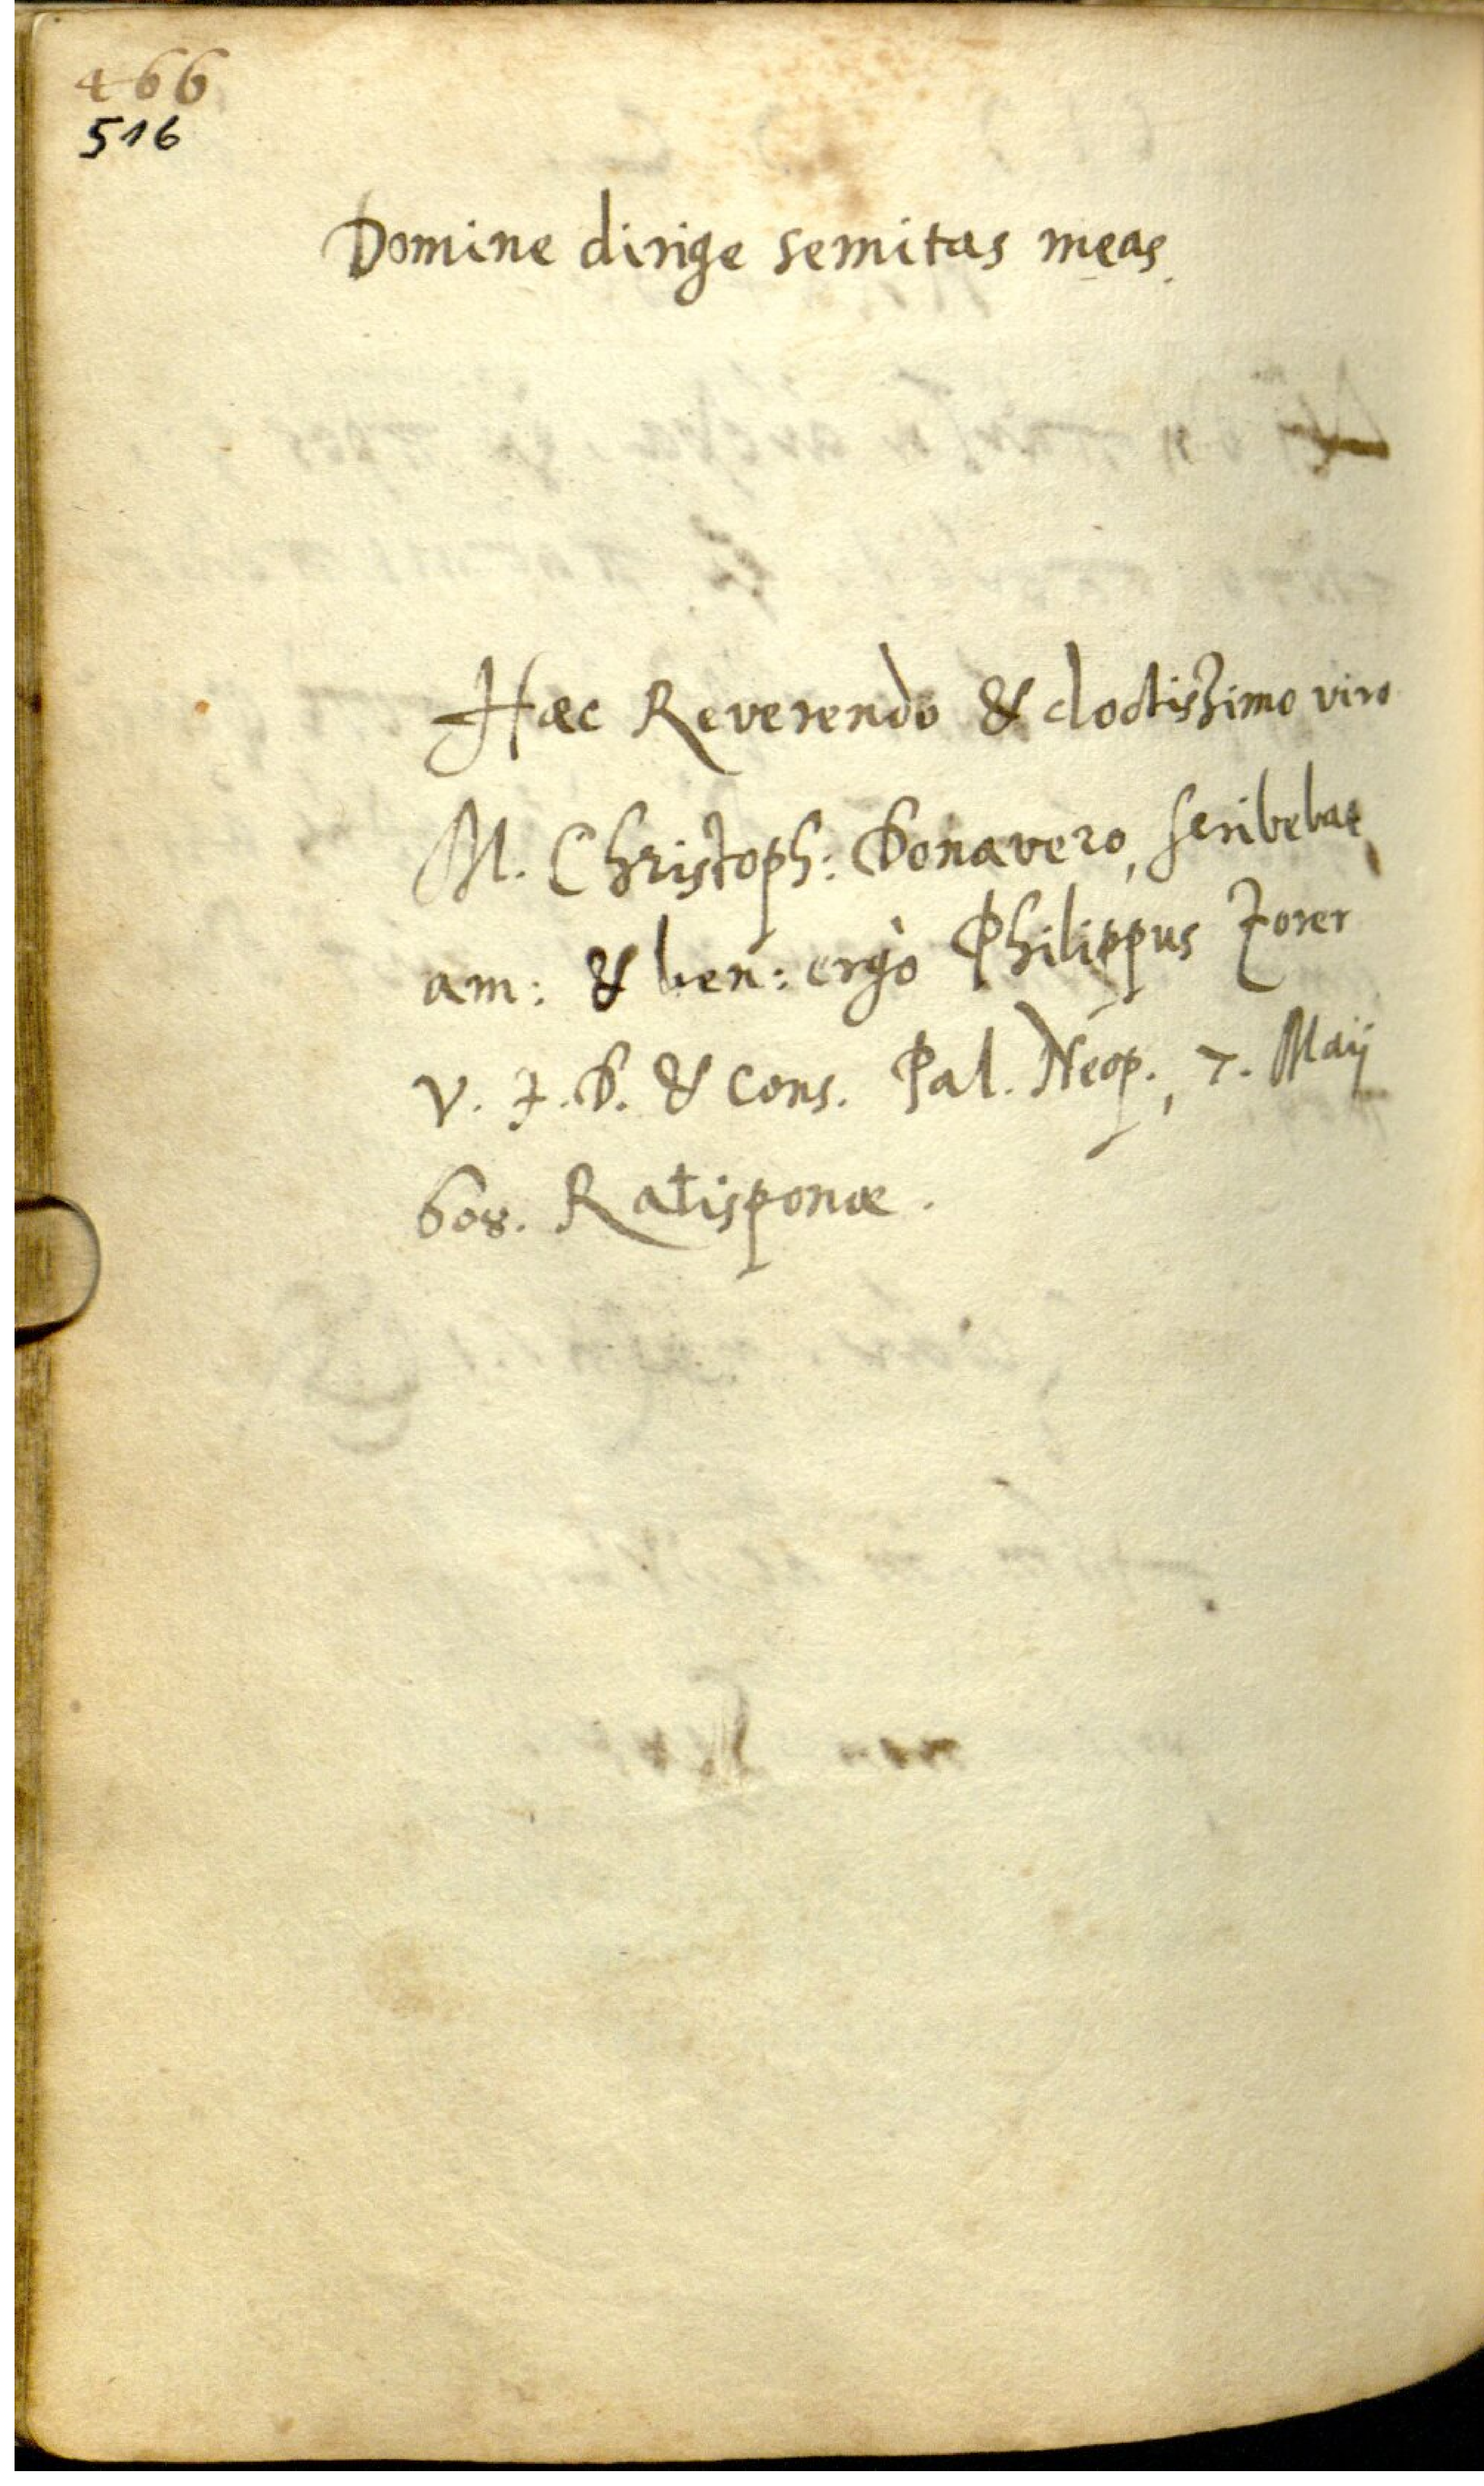 466
516
Domine dirige semitas meas.
Haec Reverendo & doctissimo viro
M. Christoph: Donavero, scribebat
am: & ben: ergò Philippus Zorer
V. J. D. & Cons. Pal. Neop., 7. Maij
608. Ratisponae.